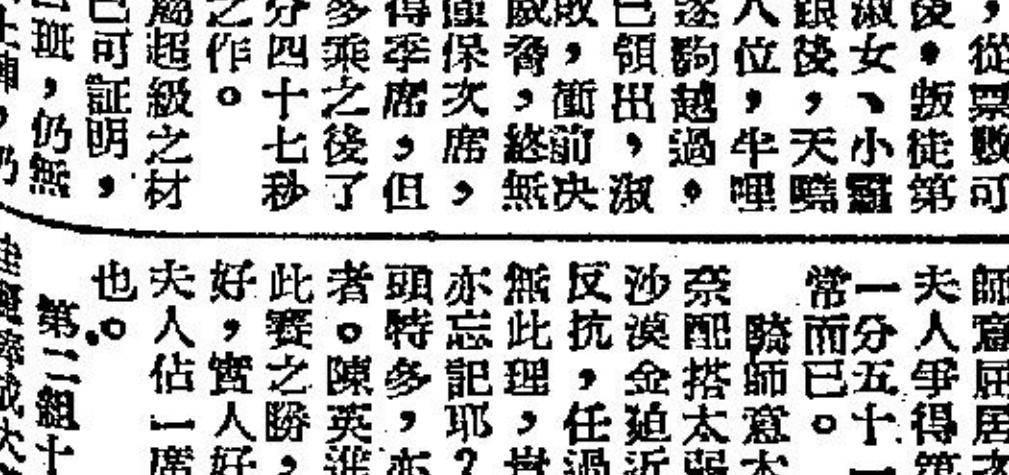 ，從票數可
後。叛徒第
淑女、小羅
銀後，天曉
人位，半哩
逐駒越過。
已領出，淑
敗，衝前决
威脅，終無
僅保次席，
得季席，但
多乘之後了
分四十七秒
之作。
屬超級之材
已可証明，
班，仍無
師意屈居次
夫人爭得第
一分五十一
常而已。
騎師意大
奈配搭太弱
沙漠金廸近
反抗，任過
無此理，豈
亦忘記耶？
頭特多，亦
者。陳英進
此賽之勝，
好，實人好
夫人佔一席
也。
第二組十